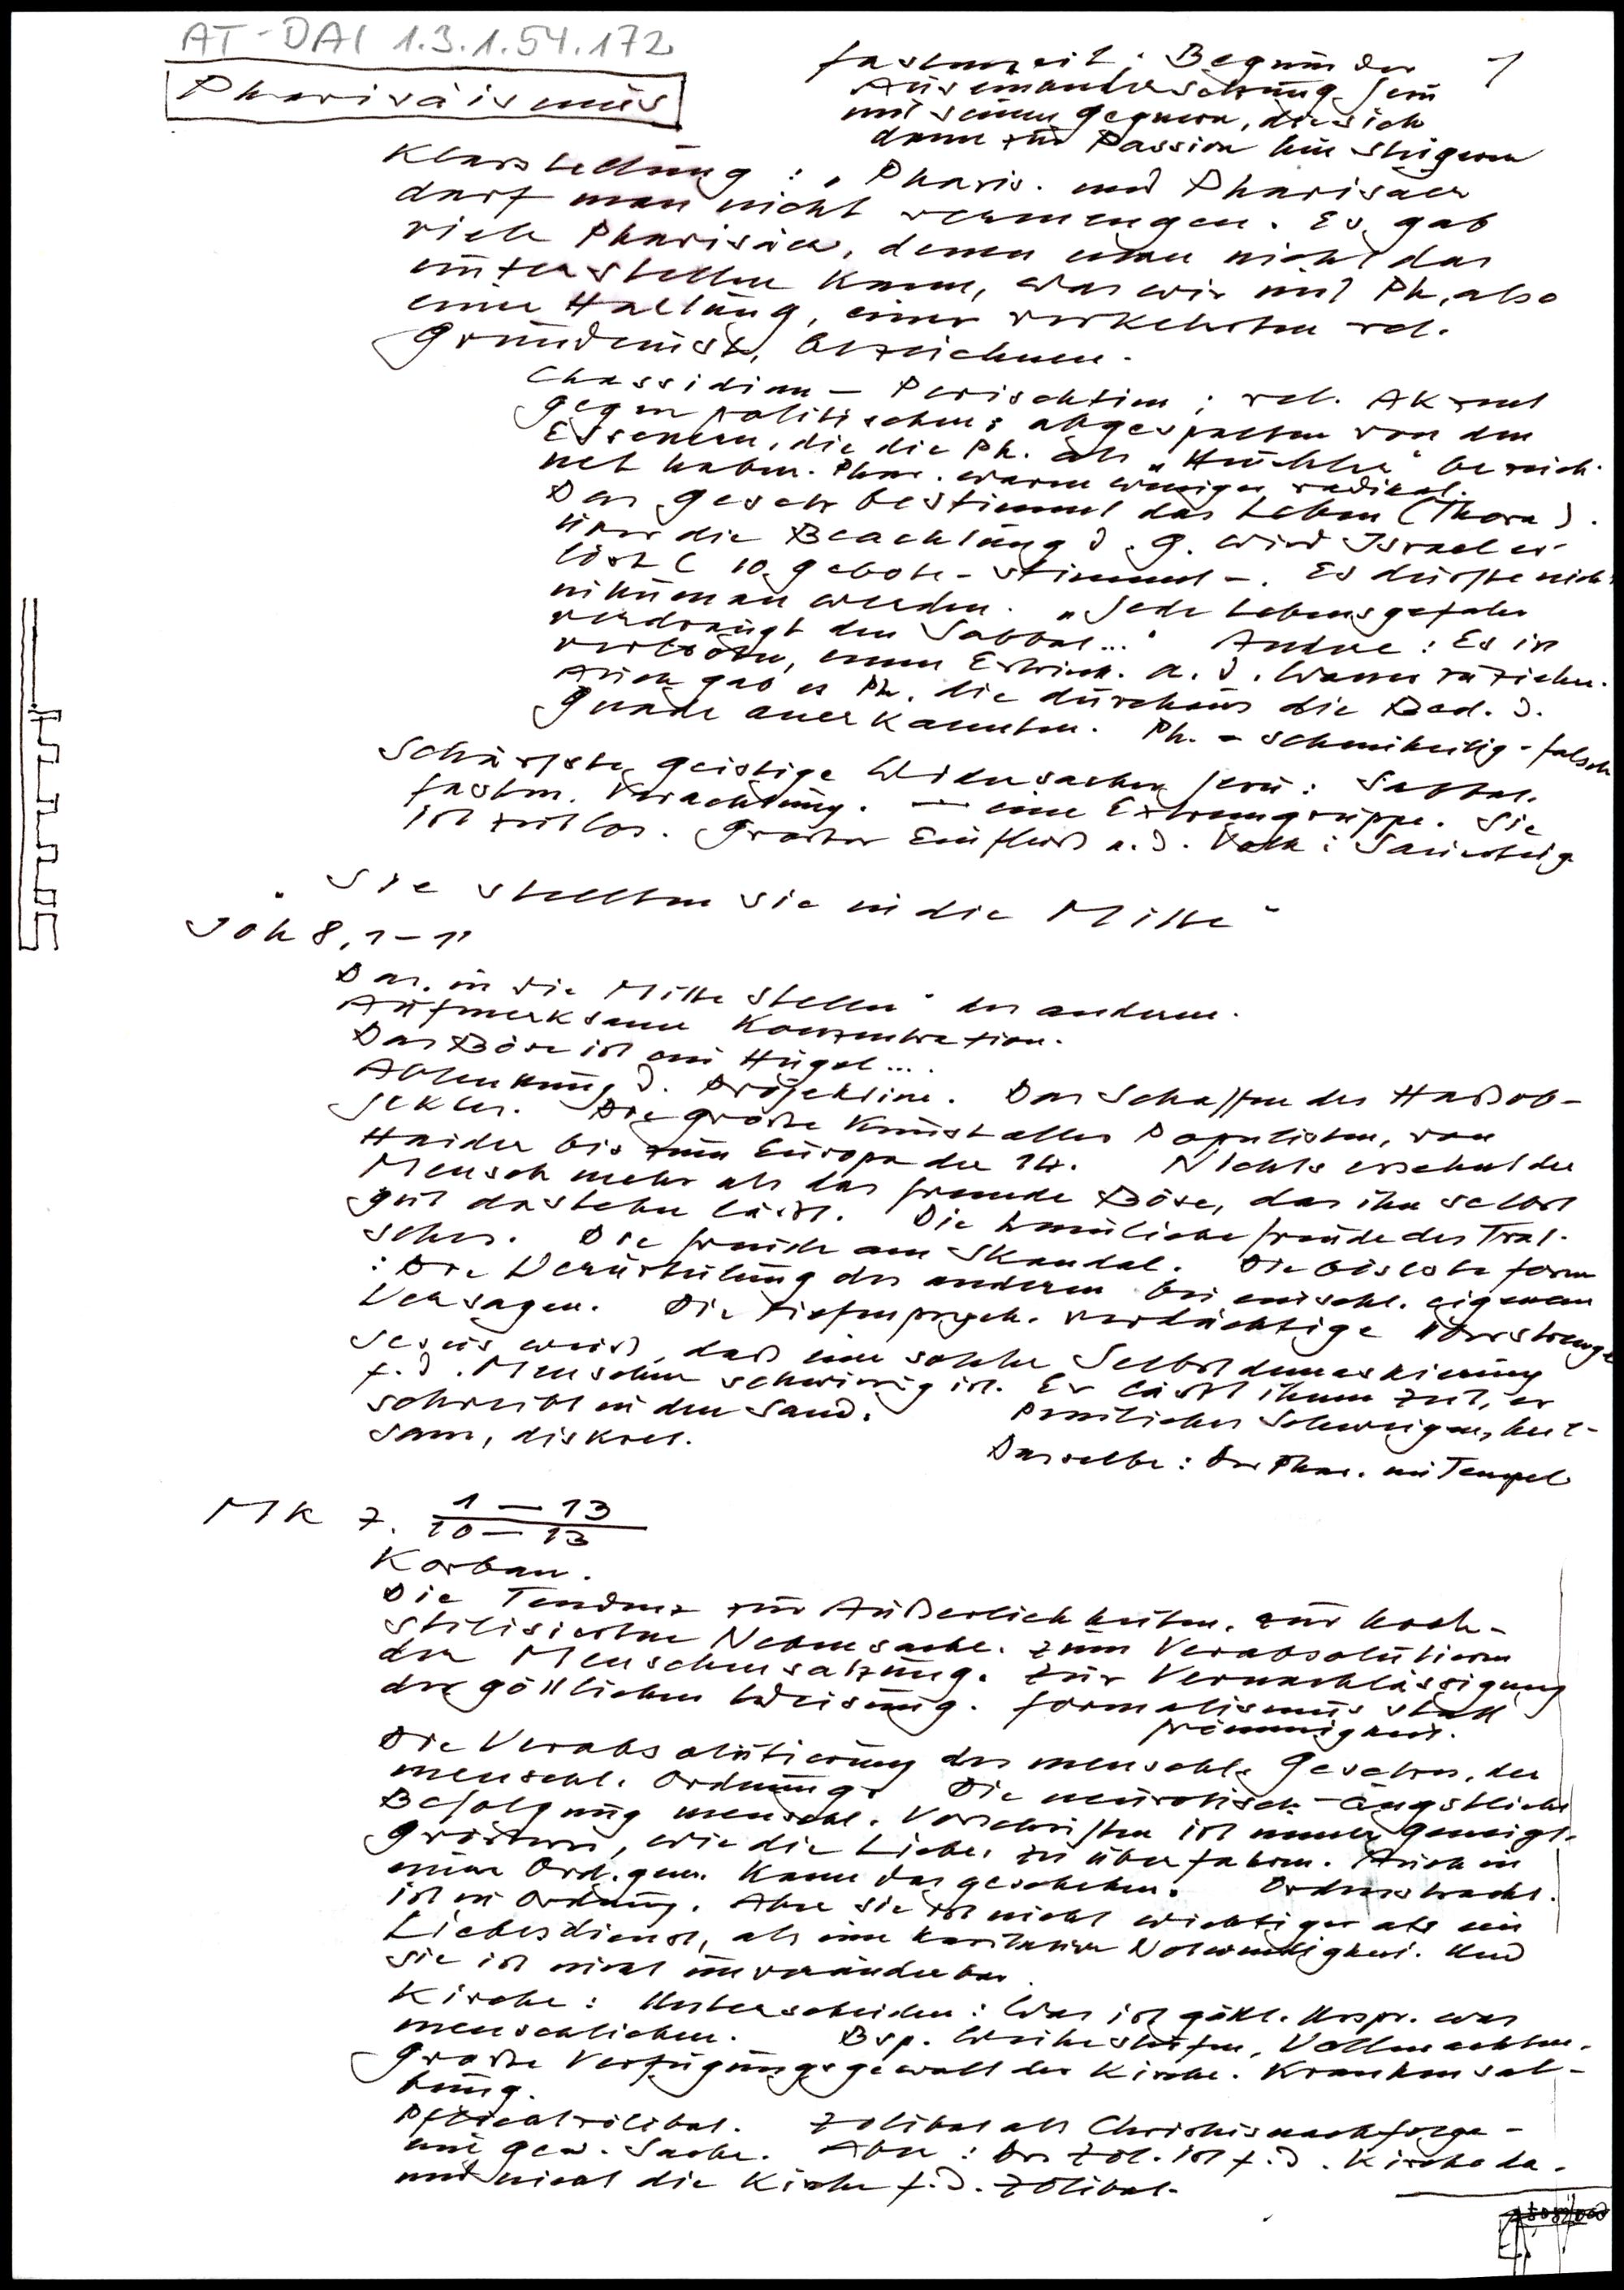 AT-DAI 1.3.1.54.172
Pharisäismus
1
Fastenzeit: Beginn der
Auseinandersetzung Jesu
mit seinen Gegnern, die sich
dann zur Passion hin steigern
Klarstellung: "Pharis. und Pharisäer
darf man nicht vermengen. Es gab
viele Pharisäer, denen man nicht das
unterstellen kann, was wir mit Ph, also
eine Haltung, einer verkehrten rel.
Grundeinst, bezeichnen.
Chassidim - Perischtim; rel. Akzent
gegen politischen; abgespalten von den
Essenern, die die Ph. als "Heuchler" bezeich-
net haben. Phar. waren weniger radikal.
Das Gesetz bestimmt das Leben (Thora).
Über die Beachtung d. G. wird Israel er-
löst (10 Gebote - stimmt -. Es dürfte nicht
inhuman werden. "Jede Lebensgefahr
verdrängt den Sabbat..." Andre: Es ist
verboten, einen Ertrink. a. d. Wasser zu ziehen.
Auch gab es Ph. die durchaus die Bed. d.
Gnade anerkannten. Ph. = scheinheilig - falsch
Schärfste geistige Widersacher Jesu: Sabbat.
Fasten. Verachtung. — eine Extremgruppe. Sie
ist zeitlos. Großer Einfluß a. d. Volk: Sauerteig
"Sie stellten sie in die Mitte"
Joh 8, 1-11
Das "in die Mitte stellen" des anderen.
Aufmerksame Konzentration.
Das Böse ist ein Hügel...
Ablenkung d. Projektion. Das Schaffen des Haßob-
jektes. Die große Kunst aller Populisten, von
Haider bis zum Europa der 14. Nichts entschuldet
Mensch mehr als das fremde Böse, das ihn selbst
gut dastehen läßt. Die heimliche Freude des Trat-
sches. Die Freude am Skandal. Die böseste Form
: Die Verurteilung des anderen bei einschl. eigenem
Versagen. Die tiefenpsych. verdächtige Überstrenge
Jesus weiß, daß eine solche Selbstdemaskierung
f. d. Menschen schwierig ist. Er läßt ihnen Zeit, er
schreibt in den Sand. Peinliches Schweigen, heil-
sam, diskret.
Dasselbe: Der Phar. im Tempel
Mk 7. 1-13
10-13
Korban.
Die Tendenz zur Äußerlichkeiten. zur hoch-
stilisierten Nebensache. zum Verabsolutieren
der Menschensatzung. zur Vernachlässigung
der göttlichen Weisung. Formalismus statt
Frömmigkeit.
Die Verabsolutierung des menschl. Gesetzes, der
menschl. Ordnung. Die neurotisch-ängstliche
Befolgung menschl. Vorschriften ist immer geneigt,
Größeres, wie die Liebe, zu überfahren. Auch in
einer Ord.gem. kann das geschehen. Ordenstracht.
ist in Ordnung. Aber sie ist nicht wichtiger als ein
Liebesdienst, als eine karitative Notwendigkeit. Und
sie ist nicht unveränderbar.
Kirche: Unterscheiden: Was ist göttl. Urspr. was
menschlichen. Bsp. Weihestufen, Vollmachten.
Große Verfügungsgewalt der Kirche. Krankensal-
bung.
Pflichtzölibat. Zölibat als Christusnachfolge -
eine gew. Sache. Aber: Der Zöl. ist f. d. Kirche da.
und nicht die Kirche f. d. Zölibat.